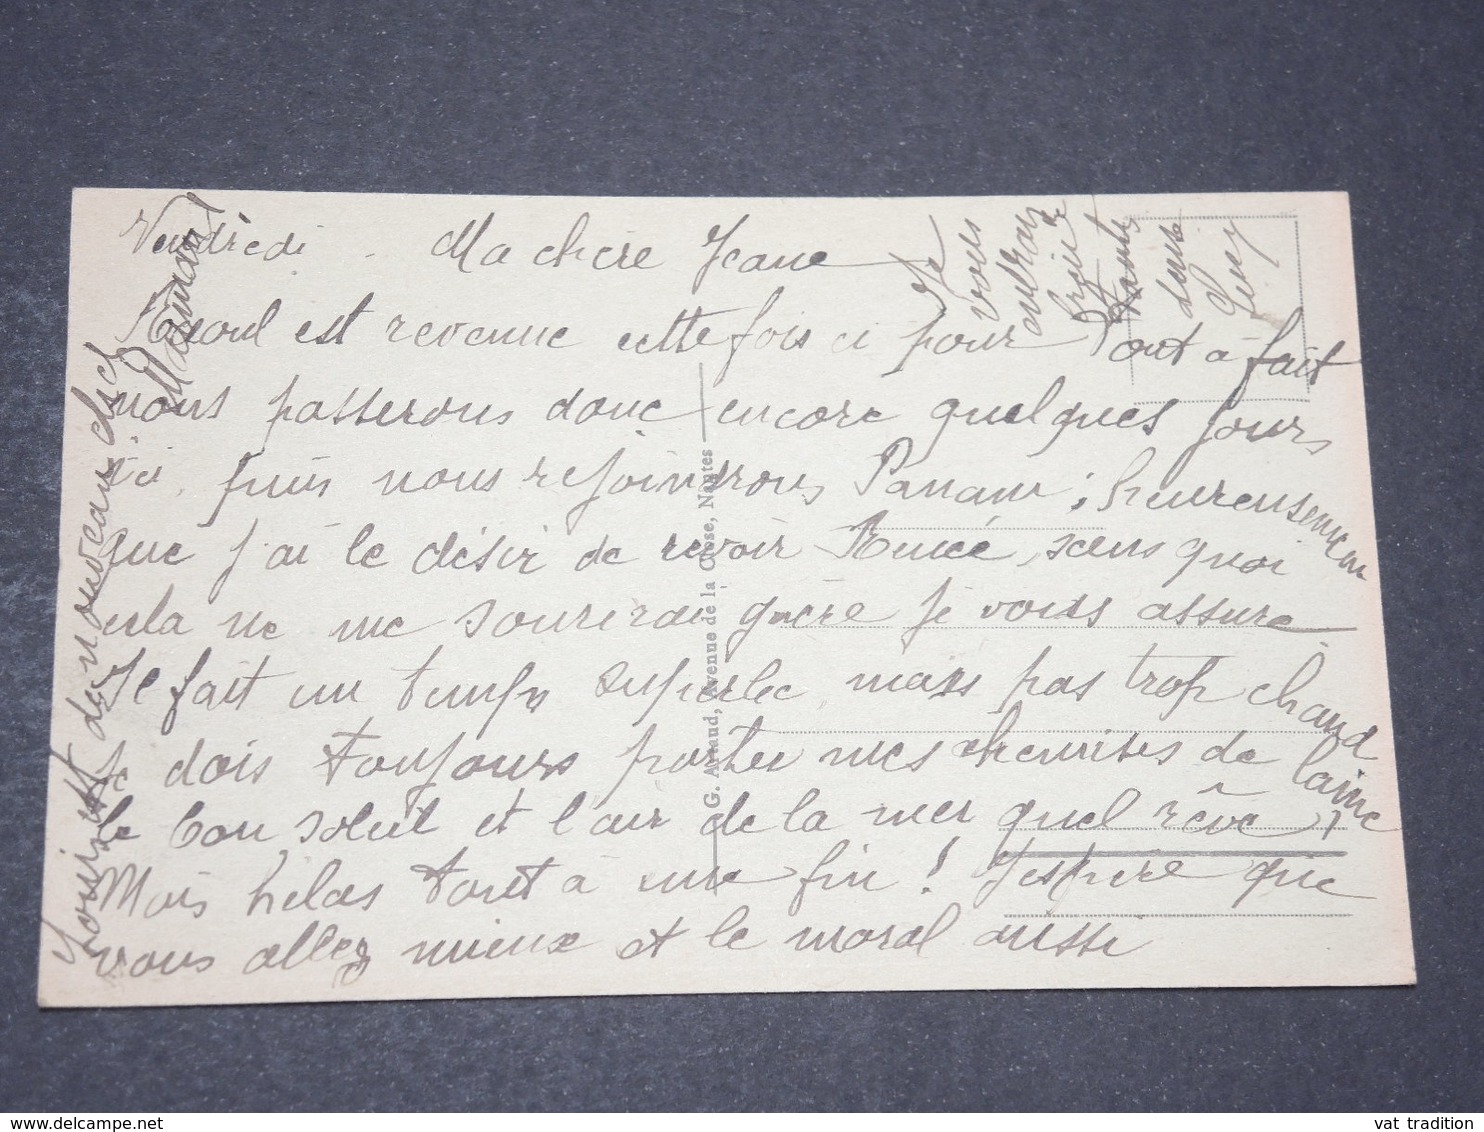 Vendredi. Ma chère Jeane
Raoul est revenue cette fois ci pour tout à fait
nous passerons donc encore quelques jours
ici, puis nous rejoindrons Paname ; heureusement
que j'ai le désir de revoir Renée, sans quoi
cela ne me sourirai guère je vous assure
Il fait un temps superbe mais pas trop chaud
je dois toujours porter mes chemises de laine
le bon soleil et l'air de la mer quel rêve,
Mais hélas tout à une fin ! J'espère que
vous allez mieux et le moral aussi
Je
vous
toute
Louis et de nouveau chez
Maman
G. Artaud, Avenue de la Close, Nantes
vat tradition
delcampe.net